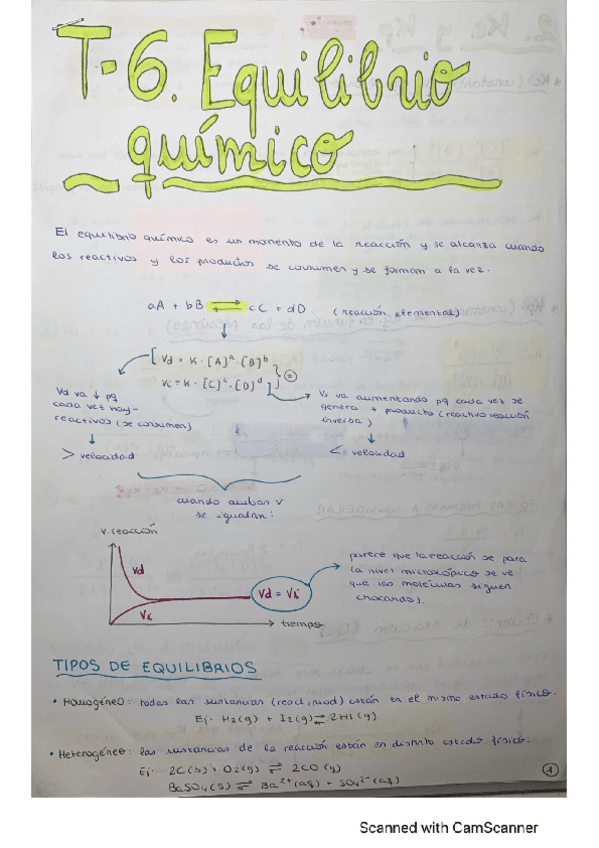 T-6. Equilibrio
químico
El equilibrio químico es un momento de la reacción y se alcanza cuando
los reactivos y los productos se consumen y se forman a la vez.
aA + bB ⇌ cC + dD (reacción elemental)
Vd = K · [A]ᵃ · [B]ᵇ
Vi = K · [C]ᶜ · [D]ᵈ
=
Vd va ↓ pq
cada vez hay -
reactivos (se consumen)
> velocidad
Vi va aumentando pq cada vez se
genera + producto (reactivo reacción
inversa)
< velocidad
cuando ambas v
se igualan:
v. reacción
Vd
Vi
Vd = Vi
tiempo
parece que la reacción se para
(a nivel microscópico se ve
que las moléculas siguen
chocando).
TIPOS DE EQUILIBRIOS
• Homogéneo: todas las sustancias (react, prod) están en el mismo estado físico.
Ej: H2(g) + I2(g) ⇌ 2HI(g)
• Heterogéneo: las sustancias de la reacción están en distinto estado físico.
Ej: 2C(s) + O2(g) ⇌ 2CO(g)
BaSO4(s) ⇌ Ba²⁺(aq) + SO4²⁻(aq)
1
Scanned with CamScanner